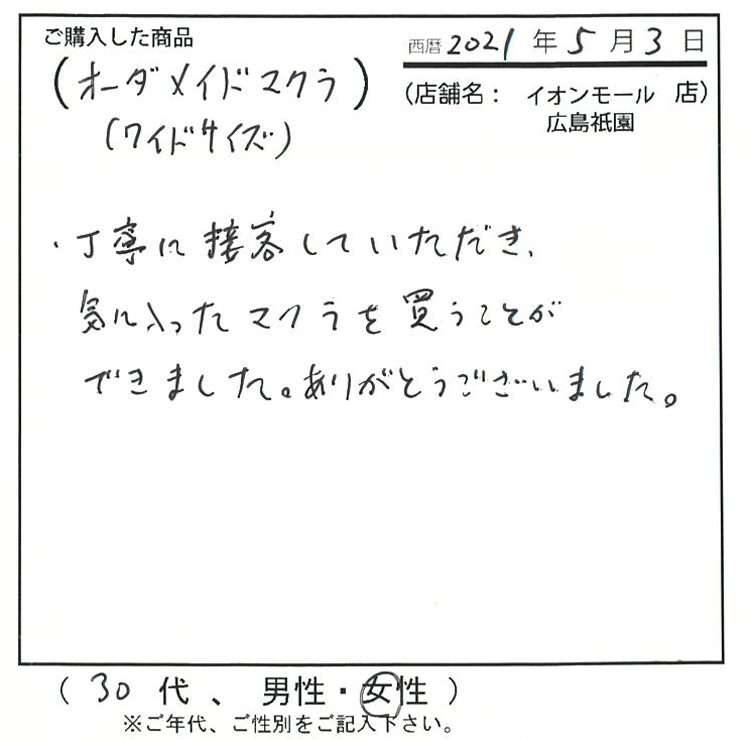 ご購入した商品
西暦 2021 年 5 月 3 日
(オーダメイドマクラ)
(ワイドサイズ)
(店舗名: イオンモール 店)
広島祇園
・丁寧に接客していただき、
気に入ったマクラを買うことが
できました。ありがとうございました。
(30 代、男性・女性)
※ご年代、ご性別をご記入下さい。